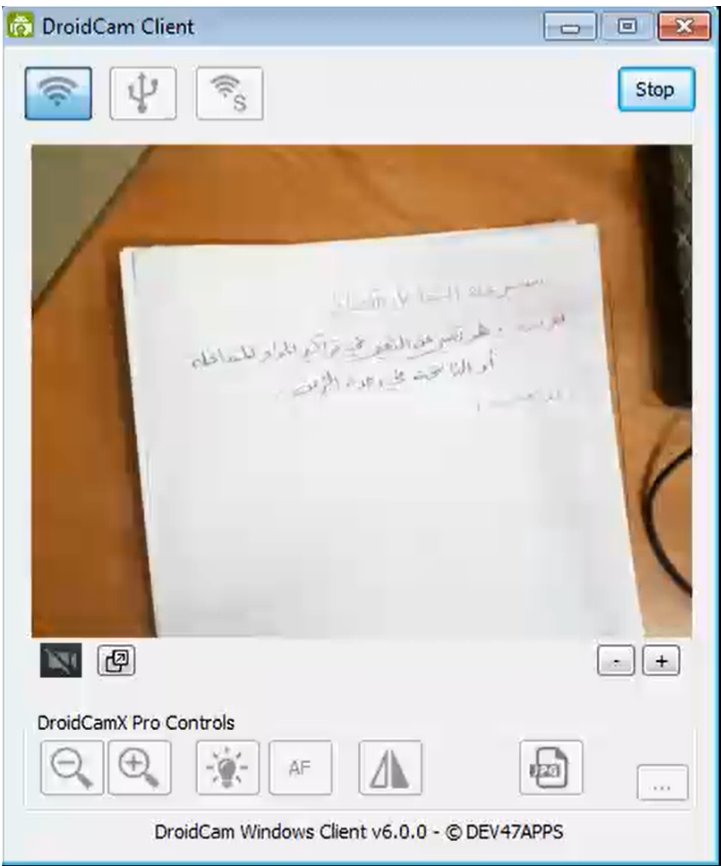 DroidCam Client
S
Stop
سرعة التفاعل الكيميائي
تعريف: هو تعبر عن التغير في تراكيز المواد المتفاعلة
أو الناتجة في وحدة الزمن.
-
+
DroidCamX Pro Controls
AF
JPG
...
DroidCam Windows Client v6.0.0 - © DEV47APPS